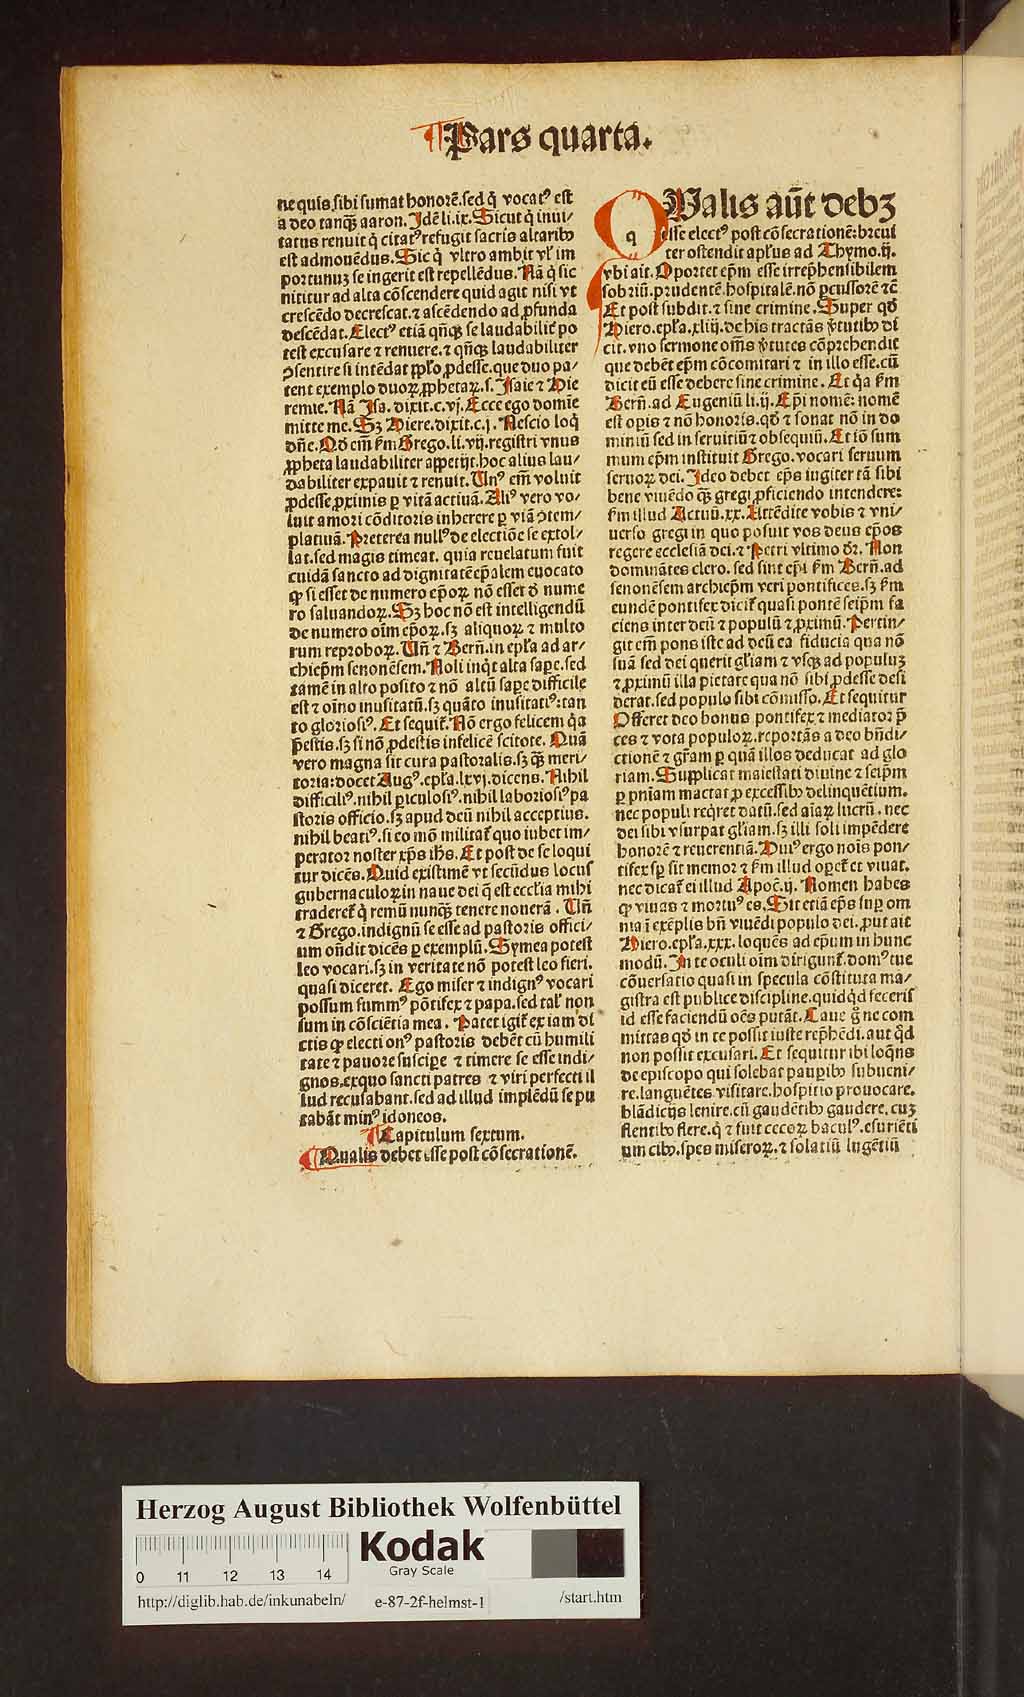 Pars quarta.
ne quis sibi sumat honorē. sed q̇ vocatꝰ est
a deo tanqꝫ aaron. Idē li. ix. Sicut q̇ inui/
tatus renuit q̇ citatꝰ refugit sacris altaribꝰ
est admouēdus. Sic q̇ vltro ambit vl' im
portunuꝫ se ingerit est repellēdus. Nā q̇ sic
nititur ad alta cōscendere quid agit nisi vt
crescēdo decrescat. ⁊ ascēdendo ad ꝓfunda
descēdat. Electꝰ etiā qn̄qꝫ se laudabilit̄ po
test excusare ⁊ renuere. ⁊ qn̄qꝫ laudabiliter
ꝯsentire si intēdat ppl'o ꝓdesse. que duo pa/
tent exemplo duoꝝ ꝓphetaꝝ. s. Isaie ⁊ Hie
remie. Nā Isa. dixit. c. vj. Ecce ego domīe
mitte me. Sꝫ Hiere. dixit. c. j. Nescio loq̇
dn̄e. Qd̄ em̄ ẜm Grego. li. vij. registri vnus
ꝓpheta laudabiliter appetijt. hoc alius lau/
dabiliter expauit ⁊ renuit. Unꝰ em̄ voluit
ꝓdesse ꝓximis ꝑ vitā actiuā. Aliꝰ vero vo/
luit amori cōditoris inherere ꝑ viā ꝯtem/
platiuā. Preterea nullꝰ de electiōe se extol/
lat. sed magis timeat. quia reuelatum fuit
cuidā sancto ad dignitatē ep̄alem euocato
ꝙ si esset de numero ep̄oꝝ nō esset d̄ nume
ro saluandoꝝ. Sꝫ hoc nō est intelligendū
de numero oīm ep̄oꝝ. sꝫ aliquoꝝ ⁊ multo
rum reproboꝝ. Un̄ ⁊ Bern̄. in ep̄la ad ar/
chiep̄m senonēsem. Noli inq̇t alta saꝑe. sed
tamē in alto posito ⁊ nō altū saꝑe difficile
est ⁊ oīno inusitatū. sꝫ quāto inusitatiꝰ: tan
to gloriosiꝰ. Et sequit̄. Nō ergo felicem q̇a
p̄estis. sꝫ si nō ꝓdestis infelicē scitote. Quā
vero magna sit cura pastoralis. sꝫ qꝫ meri/
toria: docet Augꝰ. ep̄la. lxvj. dicens. Nihil
difficiliꝰ. nihil ꝑiculosiꝰ. nihil laboriosiꝰ pa
storis officio. sꝫ apud deū nihil acceptius.
nihil beatiꝰ. si eo mō militat̄ quo iubet im/
perator noster xp̄s ihs. Et post de se loqui
tur dicēs. Quid existimē vt secūdus locus
gubernaculoꝝ in naue dei q̄ est eccl'ia mihi
traderet̄ q̇ remū nunqꝫ tenere nouerā. Un̄
⁊ Grego. indignū se esse ad pastoris offici/
um on̄dit dicēs ꝑ exemplū. Symea potest
leo vocari. sꝫ in veritate nō potest leo fieri.
quasi diceret. Ego miser ⁊ indignꝰ vocari
possum summꝰ pōtifex ⁊ papa. sed tal' non
sum in cōsciētia mea. Patet igit̄ ex iam di
ctis ꝙ electi onꝰ pastoris debēt cū humili
tate ⁊ pauore suscipe ⁊ timere se esse indi/
gnos. exquo sancti patres ⁊ viri perfecti il
lud recusabant. sed ad illud implēdū se pu
tabāt minꝰ idoneos.
Capitulum sextum.
Qualis debet esse post cōsecrationē.
QUalis aūt debꝫ
esse electꝰ post cōsecrationē: breui
ter ostendit apl'us ad Thymo. ij.
vbi ait. Oportet ep̄m esse irrep̄hensibilem
sobriū. prudentē. hospitalē. nō ꝑcussorē ⁊c̄
Et post subdit. ⁊ sine crimine. Super qd̄
Hiero. ep̄la. xliij. de his tractās v̄tutibꝰ di
cit. vno sermone om̄s v̄tutes cōp̄hendit
que debēt ep̄m cōcomitari ⁊ in illo esse. cū
dicit eū esse debere sine crimine. Et q̇a ẜm
Bern̄. ad Eugeniū li. ij. Ep̄i nomē: nomē
est oꝑis ⁊ nō honoris. qd̄ ⁊ sonat nō in do
miniū sed in seruitiū ⁊ obsequiū. Et iō sum
mum ep̄m instituit Grego. vocari seruum
seruoꝝ dei. Ideo debet ep̄s iugiter tā sibi
bene viuēdo qꝫ gregi ꝓficiendo intendere:
ẜm illud Actuū. xx. Attēdite vobis ⁊ vni/
uerso gregi in quo posuit vos deus ep̄os
regere ecclesiā dei. ⁊ Petri vltimo dr̄. Non
dominātes clero. sed sint ep̄i ẜm Bern̄. ad
senonēsem archiep̄m veri pontifices. sꝫ ẜm
eundē pontifex dicit̄ quasi pontē seip̄m fa
ciens inter deū ⁊ populū ⁊ ꝓximū. Pertin/
git em̄ pons iste ad deū ea fiducia qua nō
suā sed dei querit gl'iam ⁊ vsqꝫ ad populuꝫ
⁊ ꝓximū illa pietate qua nō sibi ꝓdesse desi
derat. sed populo sibi cōmisso. Et sequitur
Offeret deo bonus pontifex ⁊ mediator p̄
ces ⁊ vota populoꝝ. reportās a deo bn̄di/
ctionē ⁊ gr̄am ꝑ quā illos deducat ad glo
riam. Supplicat maiestati diuine ⁊ seip̄m
ꝑ pn̄iam mactat ꝓ excessibꝰ delinquētium.
nec populi req̇ret datū. sed aīaꝝ lucrū. nec
dei sibi vsurpat gl'iam. sꝫ illi soli impēdere
honorē ⁊ reuerentiā. Huiꝰ ergo nois pon/
tifex sꝑ sit memor ⁊ ẜm illud oꝑet̄ et viuat.
nec dicat̄ ei illud Apoc̄. ij. Nomen habes
ꝙ viuas ⁊ mortuꝰ es. Sit etiā ep̄s suꝑ om
nia ī exēplis bn̄ viuēdi populo dei. ꝓut ait
Hiero. ep̄la. xxx. loquēs ad ep̄um in hunc
modū. In te oculi oīm dirigunt̄. domꝰ tue
cōuersatio quasi in specula cōstituta ma/
gistra est publice discipline. quidq̇d feceris
id esse faciendū oēs putāt. Caue g̊ ne com
mittas qd̄ in te possit iuste rep̄hēdi. aut q̇d
non possit excusari. Et sequitur ibi loq̄ns
de episcopo qui solebat pauꝑibꝰ subueni/
re. languētes visitare. hospitio prouocare.
blādicijs lenire. cū gaudētibꝰ gaudere. cuꝫ
flentibꝰ flere. q̇ ⁊ fuit cecoꝝ baculꝰ. esuriēti
um cibꝰ. spes miseroꝝ. ⁊ solatiū lugētiū
Herzog August Bibliothek Wolfenbüttel
0 11 12 13 14
Kodak
Gray Scale
http://diglib.hab.de/inkunabeln/ e-87-2f-helmst-1 /start.htm